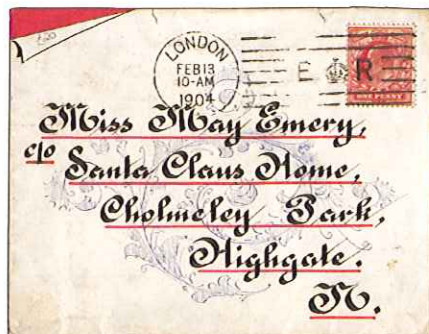 LONDON
FEB 13
10-AM
1904
E R
Miss May Emery,
c/o
Santa Claus Home,
Cholmeley Park,
Highgate.
N.